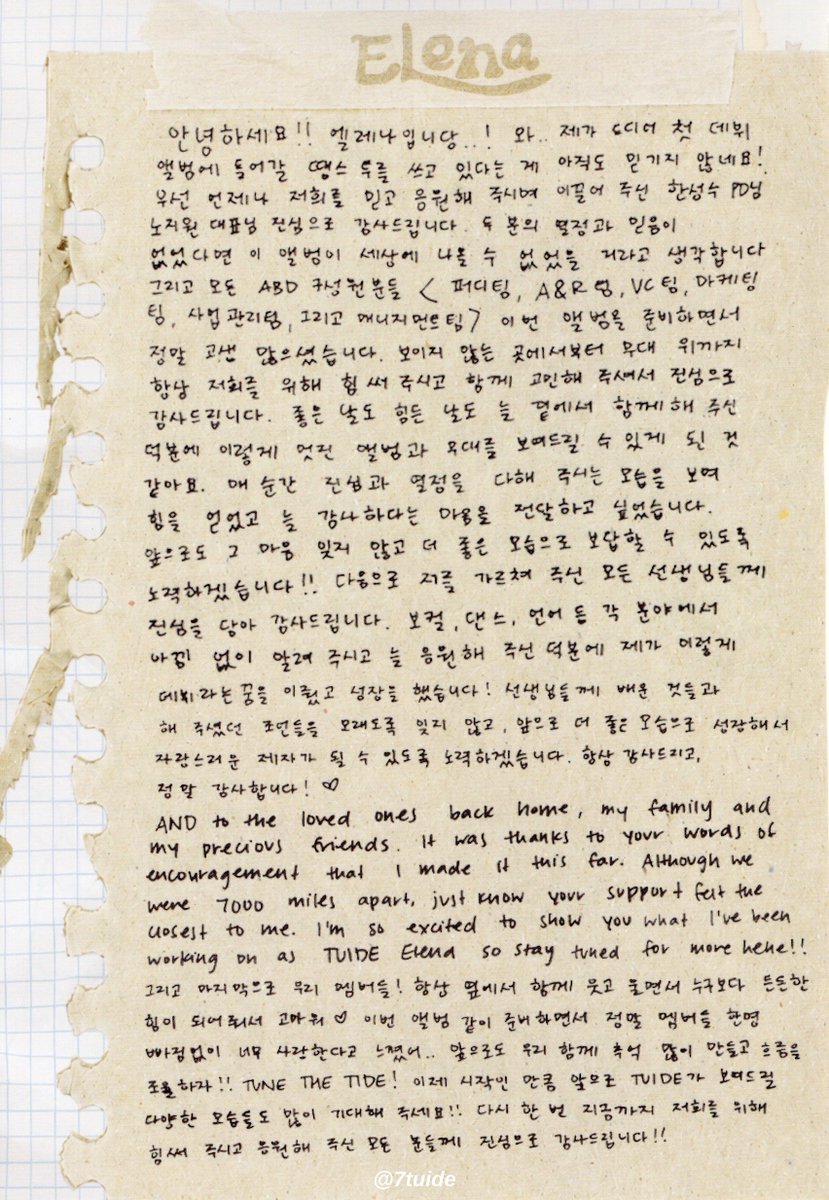 Elena
안녕하세요!! 엘레나입니당..! 와.. 제가 드디어 첫 데뷔
앨범에 들어갈 땡스 투를 쓰고 있다는 게 아직도 믿기지 않네요!
우선 언제나 저희를 믿고 응원해 주시며 이끌어 주신 한성수 PD님
노지원 대표님 진심으로 감사드립니다. 두 분의 열정과 믿음이
없었다면 이 앨범이 세상에 나올 수 없었을 거라고 생각합니다
그리고 모든 ABD 구성원분들 < 퍼디팀, A&R팀, VC팀, 마케팅
팀, 사업관리팀, 그리고 매니지먼트팀> 이번 앨범을 준비하면서
정말 고생 많으셨습니다. 보이지 않는 곳에서부터 무대 위까지
항상 저희를 위해 힘써 주시고 함께 고민해 주셔서 진심으로
감사드립니다. 좋은 날도 힘든 날도 늘 곁에서 함께해 주신
덕분에 이렇게 멋진 앨범과 무대를 보여드릴 수 있게 된 것
같아요. 매 순간 진심과 열정을 다해 주시는 모습을 보며
힘을 얻었고 늘 감사하다는 마음을 전달하고 싶었습니다.
앞으로도 그 마음 잊지 않고 더 좋은 모습으로 보답할 수 있도록
노력하겠습니다!! 다음으로 저를 가르쳐 주신 모든 선생님들께
진심을 담아 감사드립니다. 보컬, 댄스, 언어 등 각 분야에서
아낌 없이 알려 주시고 늘 응원해 주신 덕분에 제가 이렇게
데뷔라는 꿈을 이뤘고 성장을 했습니다! 선생님들께 배운 것들과
해 주셨던 조언들을 오래도록 잊지 않고, 앞으로 더 좋은 모습으로 성장해서
자랑스러운 제자가 될 수 있도록 노력하겠습니다. 항상 감사드리고,
정말 감사합니다! ♡
AND to the loved ones back home, my family and
my precious friends. It was thanks to your words of
encouragement that I made it this far. Although we
were 7000 miles apart, just know your support felt the
closest to me. I'm so excited to show you what I've been
working on as TUIDE Elena so stay tuned for more hehe!!
그리고 마지막으로 우리 멤버들! 항상 옆에서 함께 웃고 울면서 누구보다 든든한
힘이 되어줘서 고마워 ♡ 이번 앨범 같이 준비하면서 정말 멤버들 한명
빠짐없이 너무 사랑한다고 느꼈어.. 앞으로도 우리 함께 추억 많이 만들고 흐름을
조율하자!! TUNE THE TIDE! 이제 시작인 만큼 앞으로 TUIDE가 보여드릴
다양한 모습들도 많이 기대해 주세요!! 다시 한 번 지금까지 저희를 위해
힘써 주시고 응원해 주신 모든 분들께 진심으로 감사드립니다!!
@7tuide